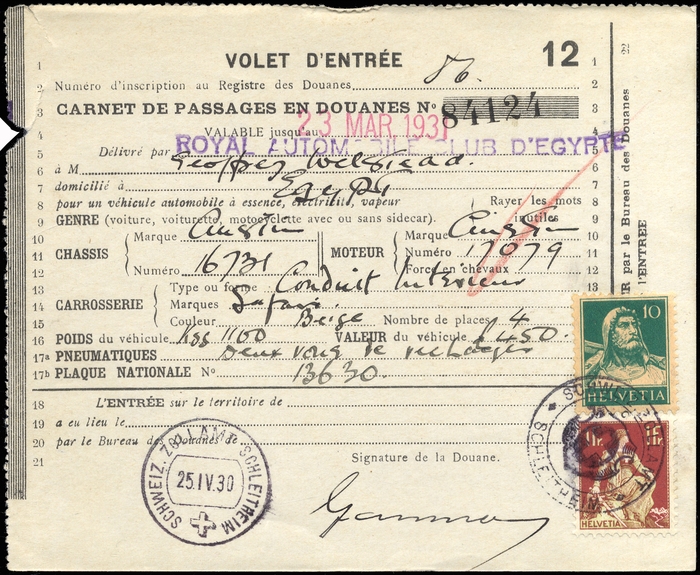 VOLET D'ENTRÉE 12
1 1
2 Numéro d'inscription au Registre des Douanes 86. 2
3 CARNET DE PASSAGES EN DOUANES Nº 84124 3
4 VALABLE jusqu'au 23 MAR 1931
5 Délivré par ROYAL AUTOMOBILE CLUB D'EGYPTE
6 à M Geoffrey 6
7 domicilié à Egypt 7
8 pour un véhicule automobile à essence, électricité, vapeur Rayer les mots 8
9 GENRE (voiture, voiturette, motocyclette avec ou sans sidecar). inutiles 9
10 CHASSIS Marque Austin MOTEUR Marque Austin 10
11 Numéro 17079 11
12 Numéro 16731 Force en chevaux 12
13 Type ou forme Conduit Interieur 13
14 CARROSSERIE Marques
15 Couleur Beige Nombre de places 4
16 POIDS du véhicule Kgs 1100 VALEUR du véhicule £ 450.
17a PNEUMATIQUES Deux roues de rechanges
17b PLAQUE NATIONALE Nº 13630.
18 L'ENTRÉE sur le territoire de
19 a eu lieu le
20 par le Bureau des Douanes de
21 Signature de la Douane.
SCHWEIZ. ZOLLAMT SCHLEITHEIM
25.IV.30
10
HELVETIA
1Fr. 1Fr.
HELVETIA
SCHLEITHEIM
par le Bureau des Douanes
L'ENTRÉE